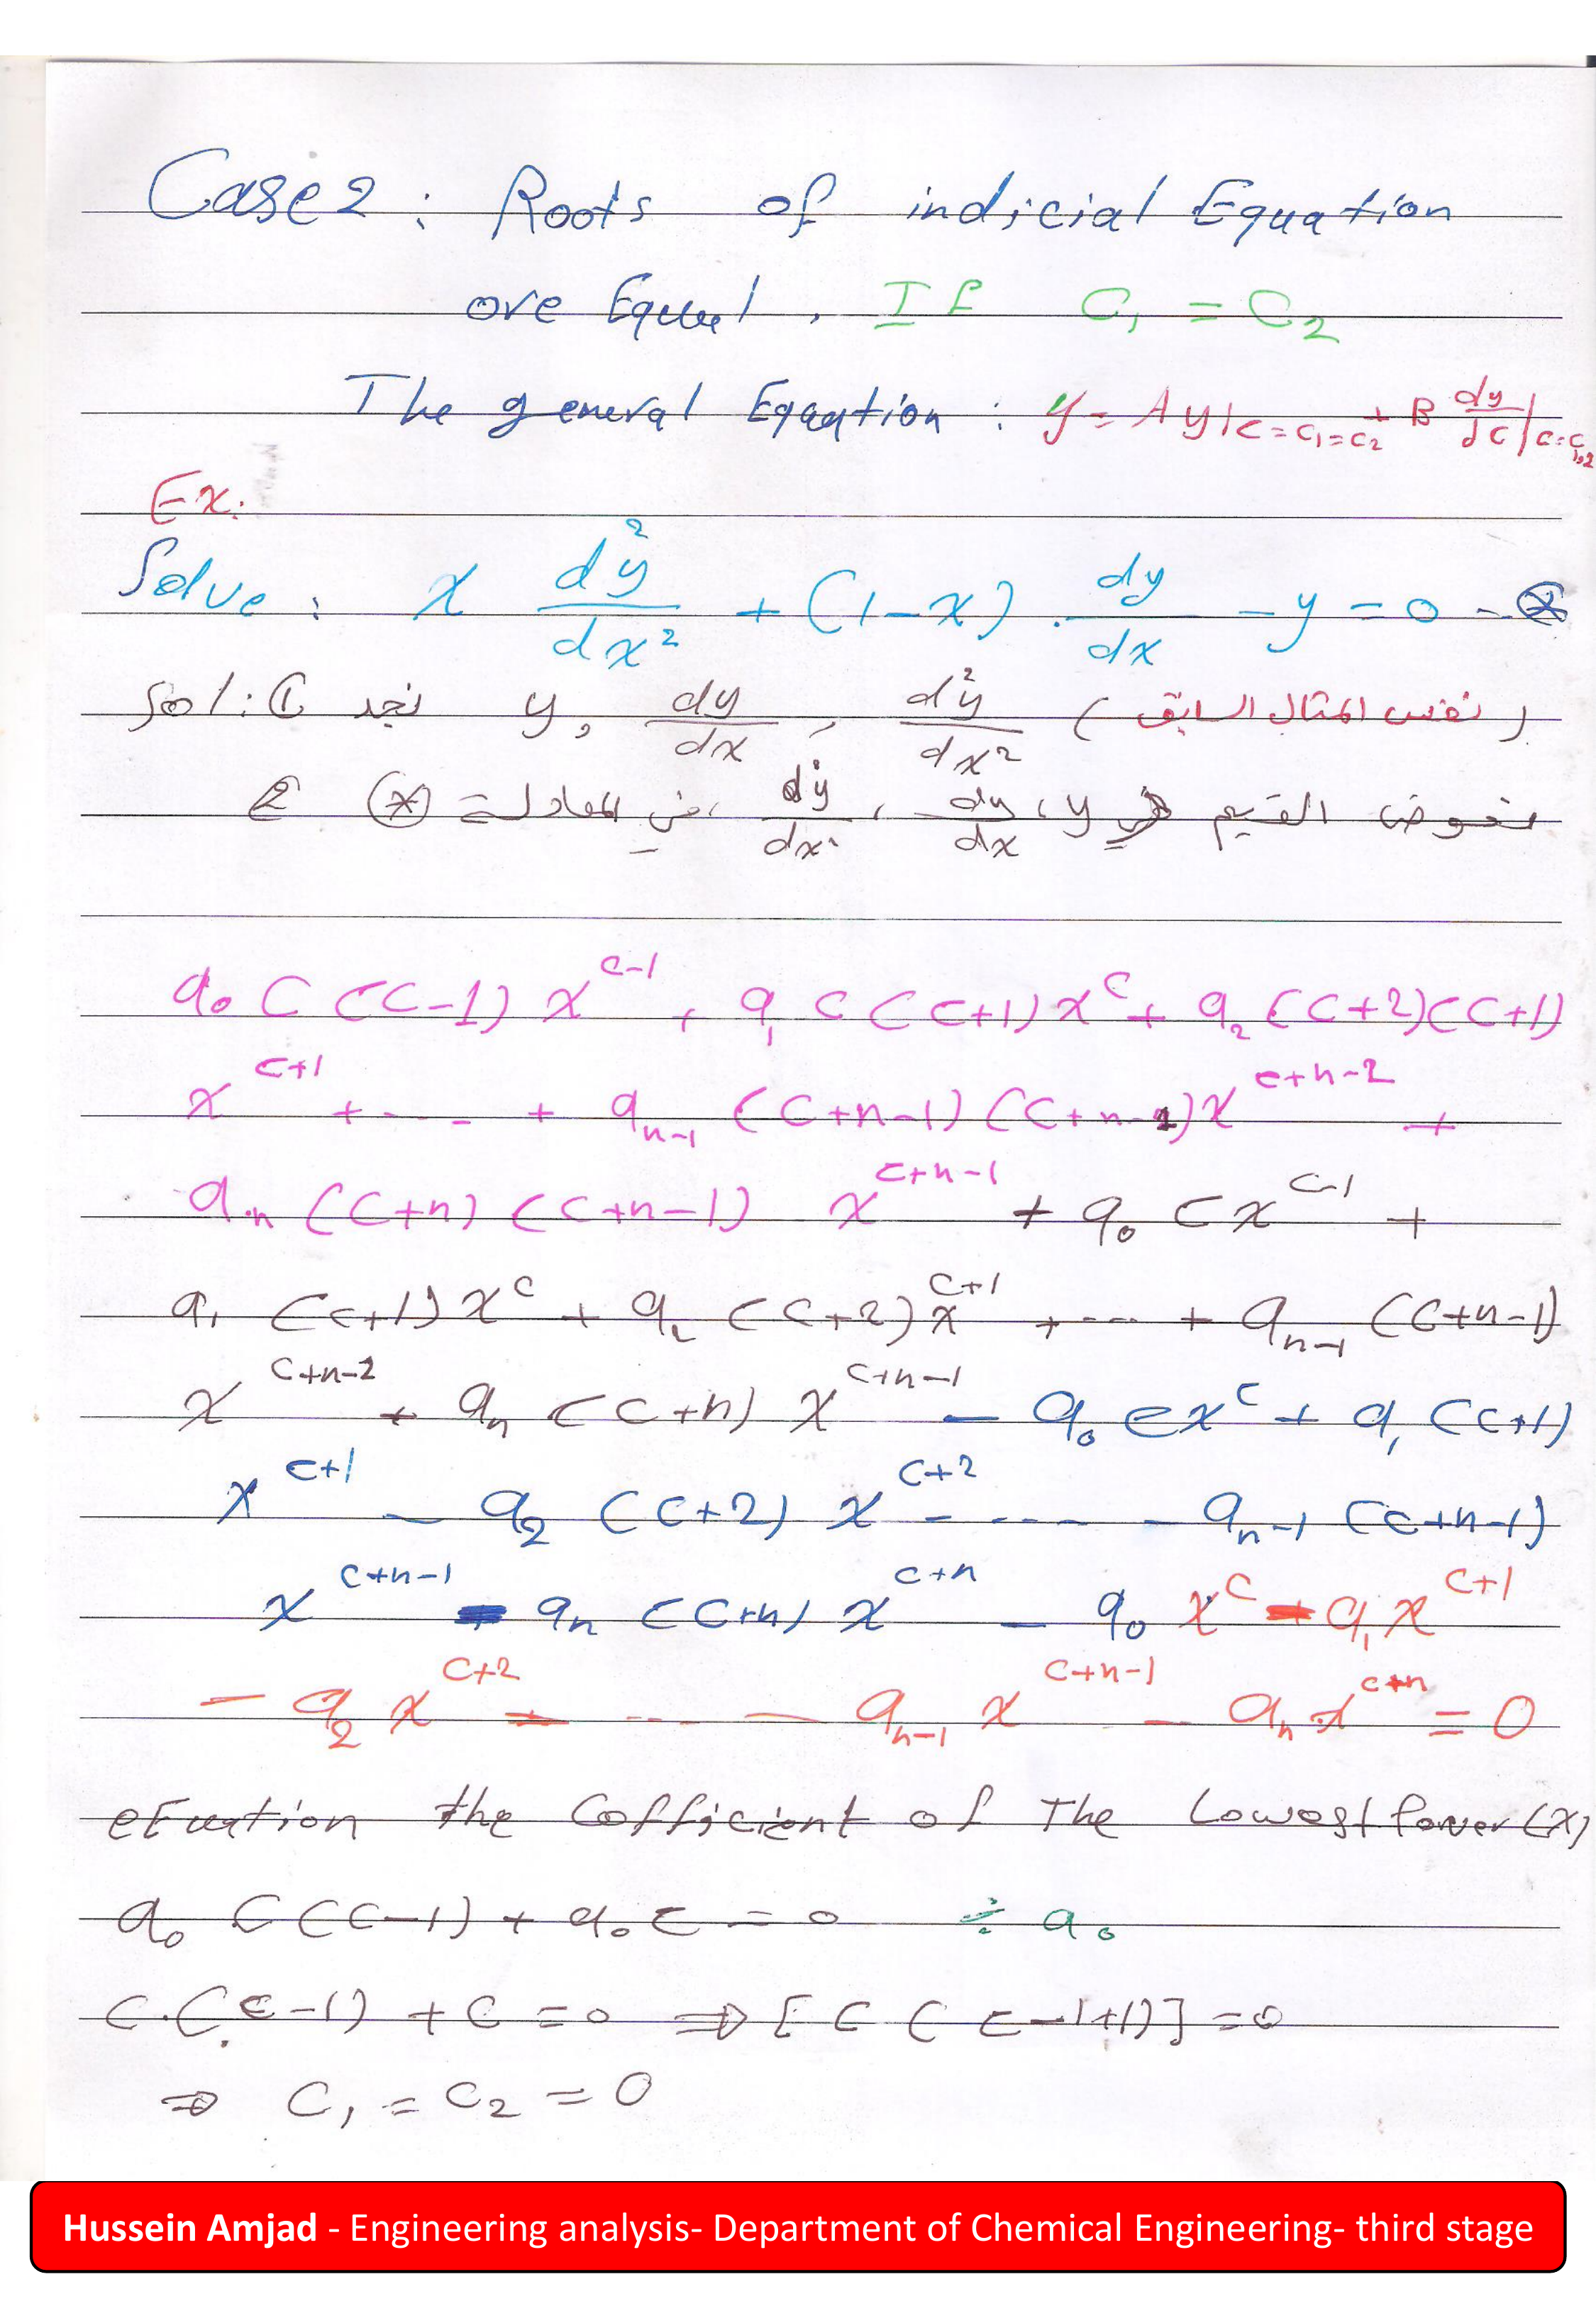 Case 2 : Roots of indicial Equation
are Equal , If C₁ = C₂
The general Equation : y = A y|c=c₁=c₂ + B dy/dc|c=c₁,₂
Ex:
Solve : x d²y/dx² + (1-x) . dy/dx - y = 0 - ⊛
Sol: ① نجد y, dy/dx , d²y/dx² (نفس المثال السابق)
② نعوض القيم y ، dy/dx ، d²y/dx² في المعادلة ⊛
a₀ C (C-1) x^(c-1) + a₁ C (C+1) x^c + a₂ (C+2)(C+1)
x^(c+1) + --- + a_(n-1) (C+n-1) (C+n-2) x^(c+n-2) +
a_n (C+n) (C+n-1) x^(c+n-1) + a₀ C x^(c-1) +
a₁ (C+1) x^c + a₂ (C+2) x^(c+1) + --- + a_(n-1) (C+n-1)
x^(c+n-2) + a_n (C+n) x^(c+n-1) - a₀ C x^c + a₁ (C+1)
x^(c+1) - a₂ (C+2) x^(c+2) - ---- - a_(n-1) (C+n-1)
x^(c+n-1) - a_n (C+n) x^(c+n) - a₀ x^c - a₁ x^(c+1)
- a₂ x^(c+2) - --- - a_(n-1) x^(c+n-1) - a_n x^(c+n) = 0
the Cofficient of The Lowest Power (x)
a₀ C (C-1) + a₀ C = 0 ÷ a₀
C . (C-1) + C = 0 ⇒ [C (C-1+1)] = 0
⇒ C₁ = C₂ = 0
Hussein Amjad - Engineering analysis- Department of Chemical Engineering- third stage